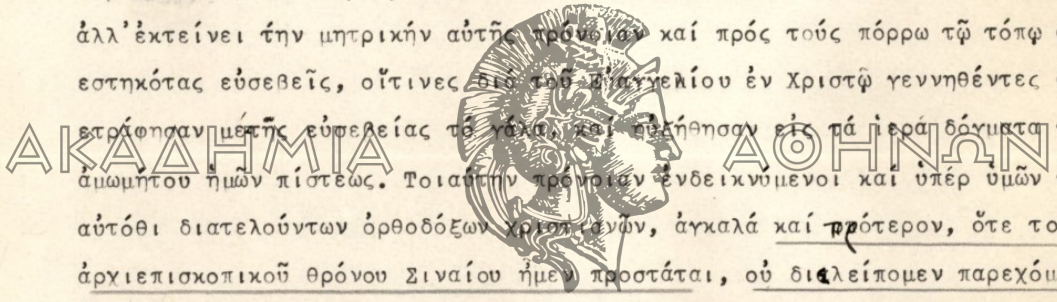 ἀλλ'ἐκτείνει τήν μητρικήν αὐτῆς πρόνοιαν καί πρός τούς πόρρω τῷ τόπῳ
εστηκότας εὐσεβεῖς, οἵτινες διά τοῦ Εὐαγγελίου ἐν Χριστῷ γεννηθέντες
ετράφησαν μέ τῆς εὐσεβείας τό γάλα, καί ηὐξήθησαν εἰς τά ἱερά δόγματα
ΑΚΑΔΗΜΙΑ ΑΘΗΝΩΝ
ἀμωμήτου ἡμῶν πίστεως. Τοιαύτην πρόνοιαν ἐνδεικνύμενοι καί ὑπέρ ὑμῶν
αὐτόθι διατελούντων ὀρθοδόξων χριστιανῶν, ἀγκαλά καί πρότερον, ὅτε το
ἀρχιεπισκοπικοῦ θρόνου Σιναίου ἦμεν προστάται, οὐ διελείπομεν παρεχόμ